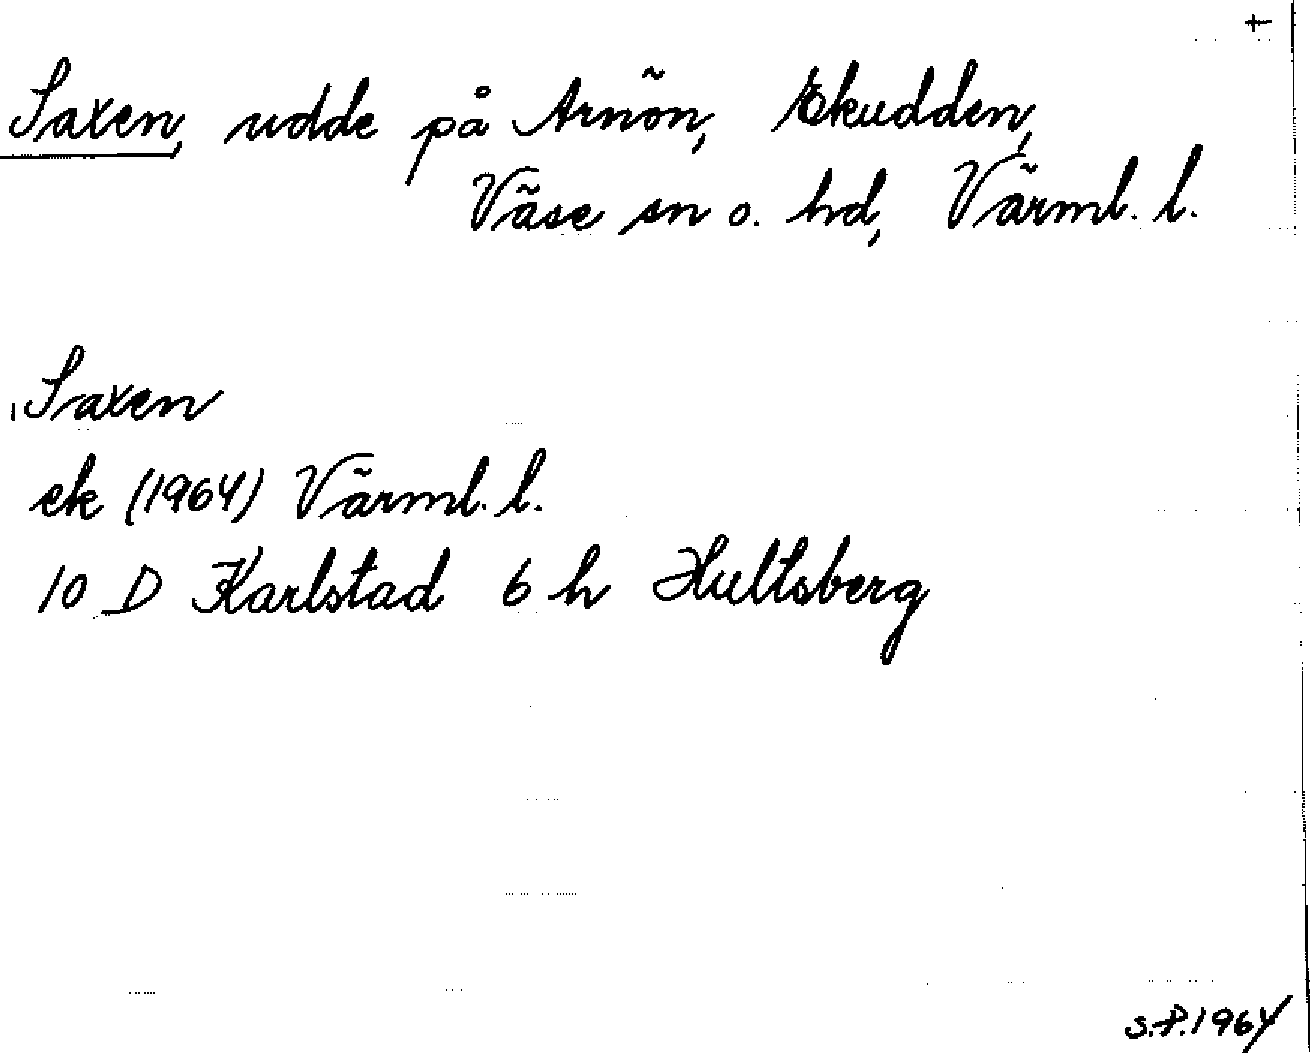 +
Saxen, udde på Arnön, Ekudden,
Väse sn o. hd, Värml. l.
Saxen
ek (1964) Värml. l.
10 D Karlstad 6 h Hultsberg
S.P. 1964